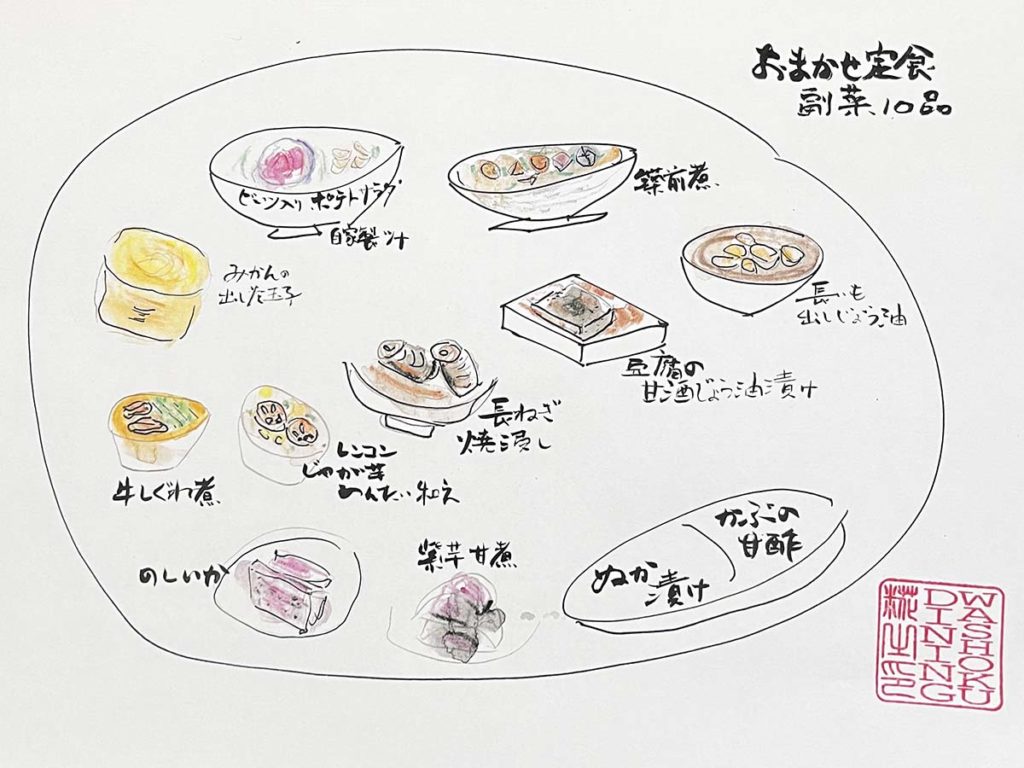 おまかせ定食
副菜10品
ビーツ入りポテトサラダ
自家製ツナ
筑前煮
みかんの
出し入た玉子
長いも
出しじょう油
豆腐の
甘酒じょう油漬け
長ねぎ
焼浸し
牛しぐれ煮
レンコン
じゃが芋
めんたい和え
のしいか
紫芋甘煮
かぶの
甘酢
ぬか
漬け
WASHOKU
DINING